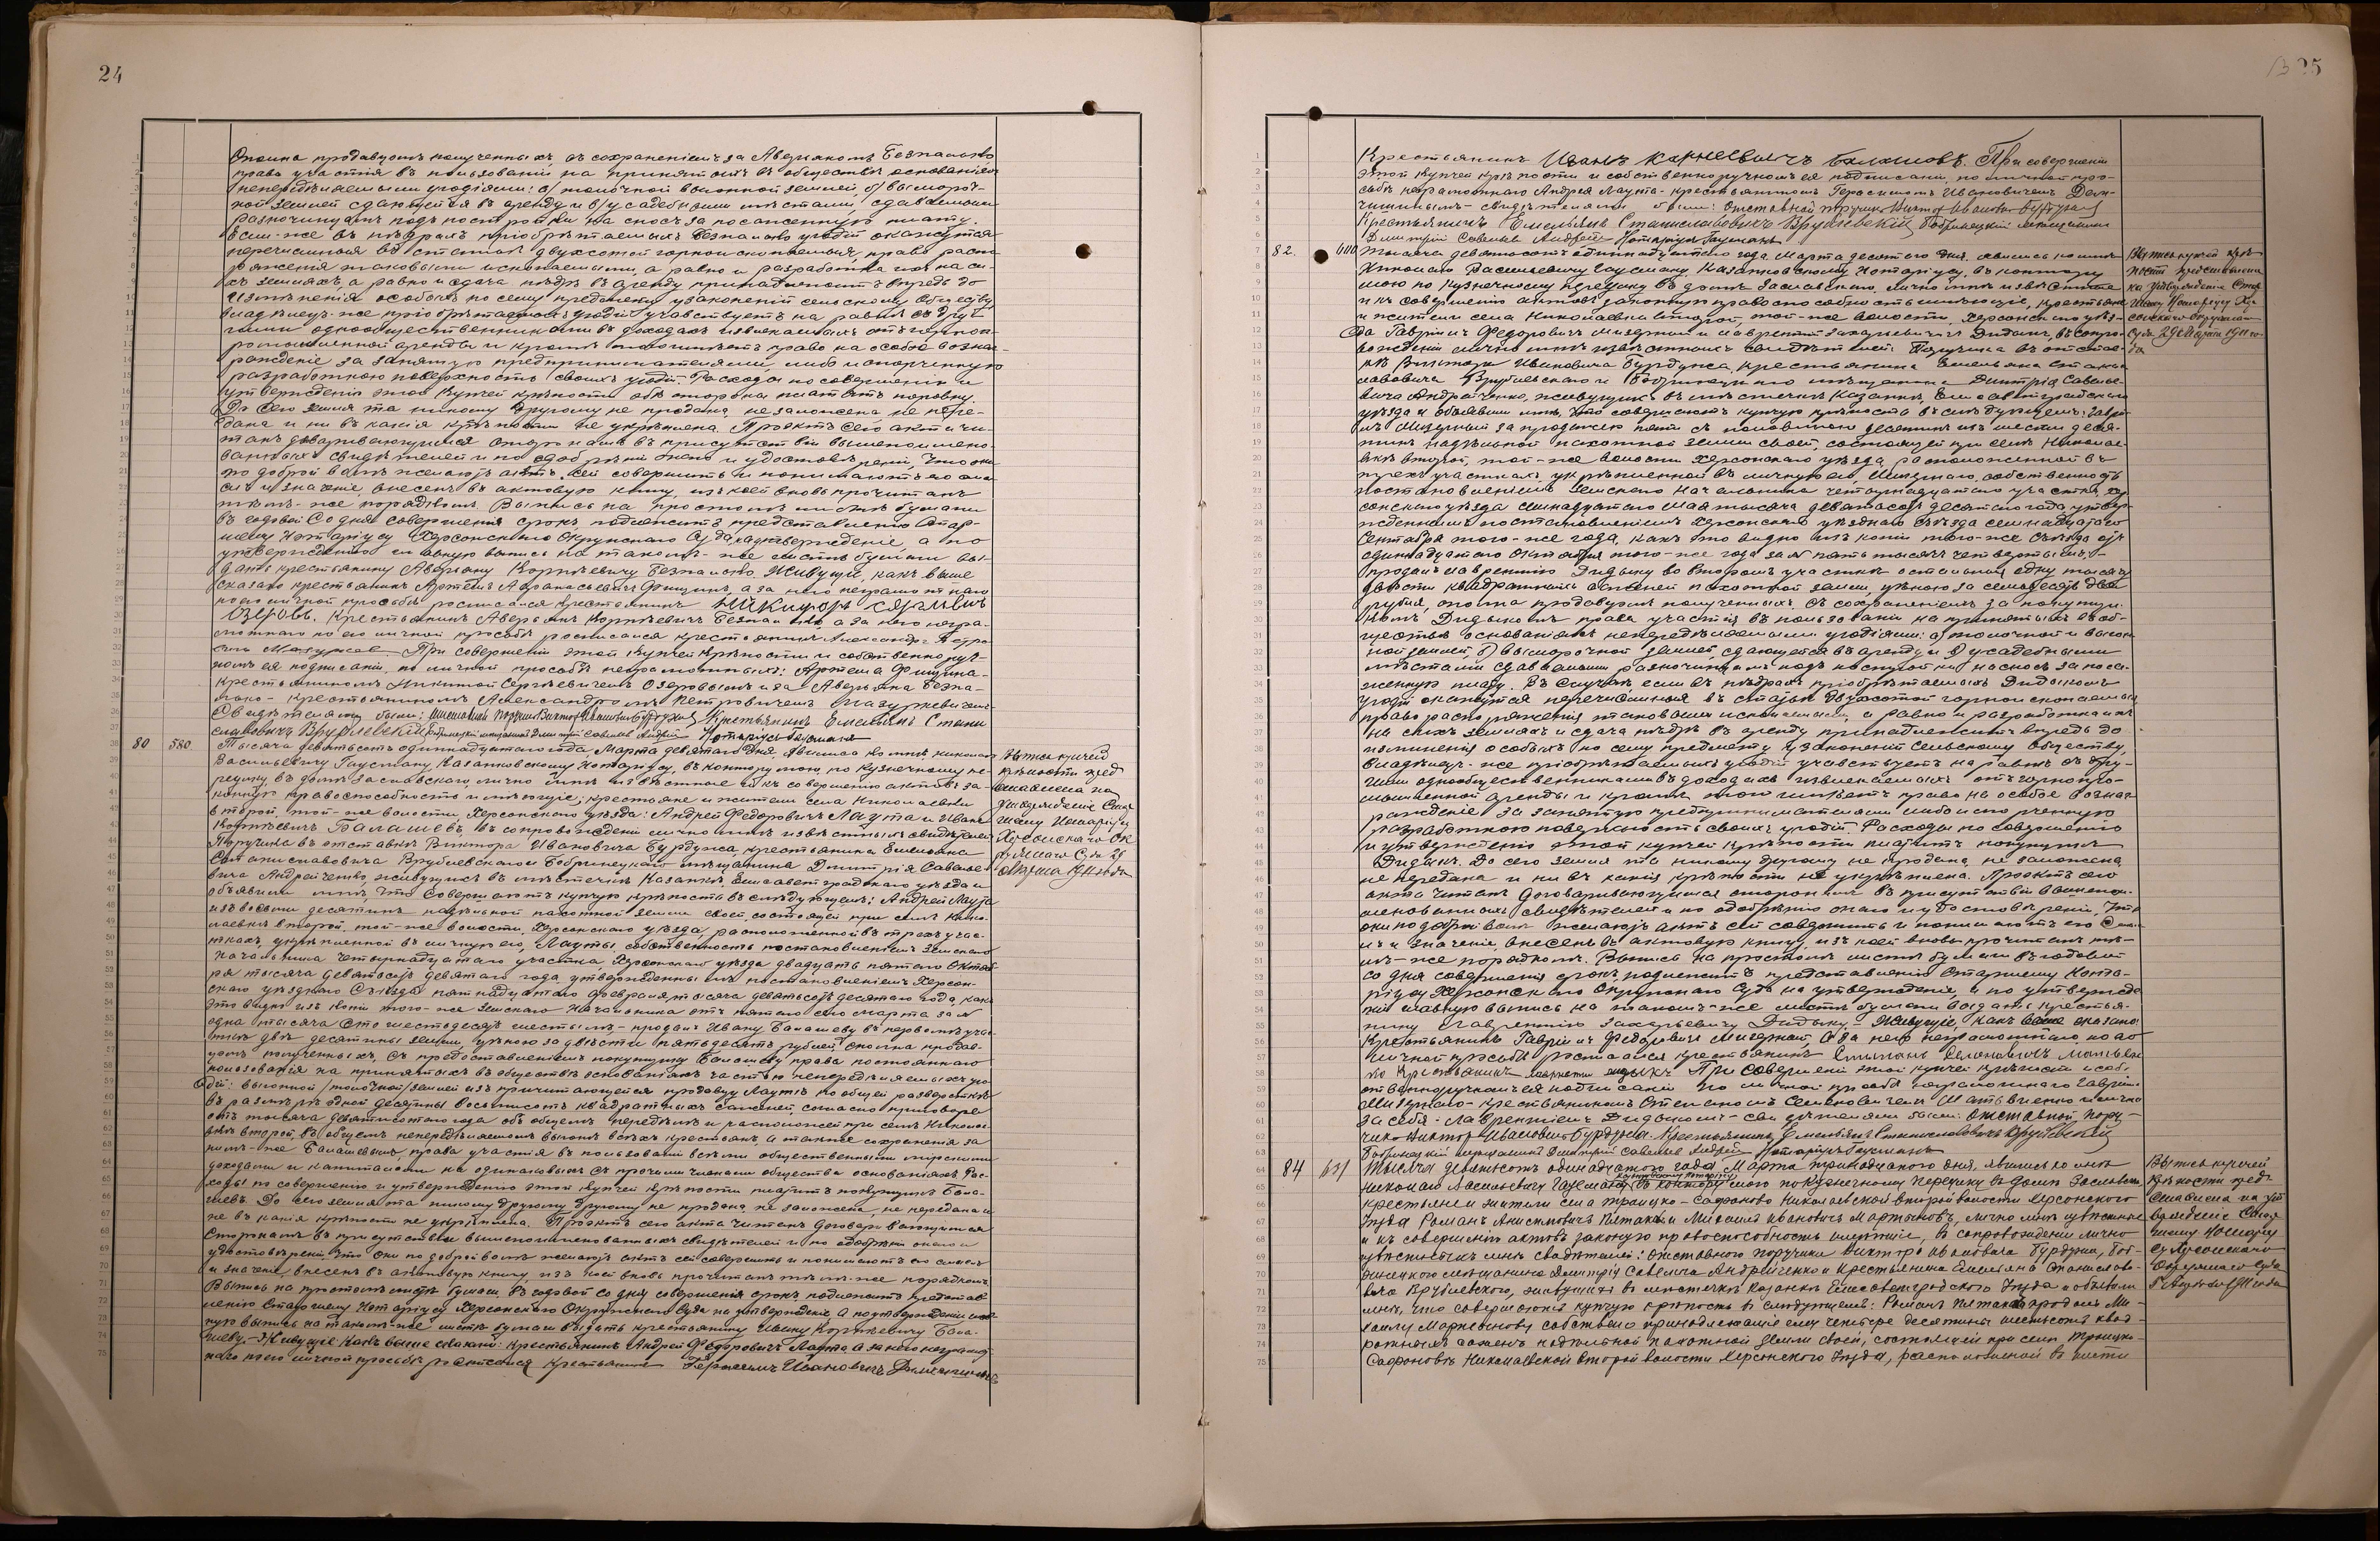 24
продавцомъ полученныхъ, съ сохраненіемъ за Аверьяномъ Безпалько
права участія въ пользованіи на принятыхъ въ обществѣ основаніяхъ
непередѣляемыми угодіями: а) толочной выгонной землей, б) выморочной
ной землей сдающейся въ аренду и в) усадебными мѣстами сдаваемыми
разночинцамъ подъ постройки на сносъ за посаженную плату.
Если-же въ нѣдрахъ пріобрѣтаемыхъ Безпалько угодій окажутся
перечисленныя въ статьѣ двухсотой горной ископаемыя, право распо-
ряженія таковыми ископаемыми, а равно и разработка ихъ на си-
хъ земляхъ, а равно и сдача нѣдръ въ аренду принадлежитъ впредь до
измѣненія особыхъ по сему предмету узаконеній сельскому обществу
владѣлецъ-же пріобрѣтаемыхъ угодій участвуетъ на равнѣ съ дру-
гими однообщественниками въ доходахъ извлекаемыхъ отъ горноп-
ромышленной аренды и кромѣ того имѣетъ право на особое вознаг-
ражденіе за занятую предпринимателями либо испорченную
разработкою поверхность своихъ угодій. Расходы по совершенію и
утвержденію этой купчей крѣпости обѣ стороны платятъ поровну.
До сего земля та никому другому не продана, не заложена не пере-
дана и ни въ какія крѣпости не укрѣплена. Проектъ сего акта чи-
танъ договаривающимся сторонамъ въ присутствіи вышепоимено-
ванныхъ свидѣтелей и по одобреніи онаго и удостовѣреніи, что они
по доброй волѣ желаютъ актъ сей совершить и понимаютъ его смы-
слъ и значеніе, внесенъ въ актовую книгу, изъ коей вновь прочитанъ
тѣмъ-же порядкомъ. Выпись на простомъ листѣ бумаги
въ годовой со дня совершенія срокъ подлежитъ представленію Стар-
шему Нотаріусу Херсонскаго Окружнаго Суда на утвержденіе, а по
утвержденіи главную выпись на такомъ-же листѣ бумаги вы-
дать крестьянину Аверьяну Корнѣевичу Безпалько. Живущіе, какъ выше
сказано крестьянинъ Артемъ Афанасьевичъ Фищинъ, а за него неграмотнаго
по его личной просьбѣ росписался крестьянинъ Никифоръ Сергѣевъ
Озеровъ. Крестьянинъ Аверьянъ Корнѣевичъ Безпалько а за него негра-
мотнаго по его личной просьбѣ росписался крестьянинъ Александръ Петро-
вичъ Мазуркевъ. При совершеніи этой купчей крѣпости и собственноруч-
номъ ея подписаніи, по личной просьбѣ неграмотныхъ: Артема Фищина-
крестьяниномъ Никитой Сергѣевичемъ Озеровымъ и за Аверьяна Безпа-
лько - крестьяниномъ Александромъ Петровичемъ Мазуркевичемъ
Свидѣтелями были: отставной Поручикъ Викторъ Ивановичъ Бурдуса Крестьянинъ Емельянъ Стани
славовичъ Врублевскій Бобринецкій мѣщанинъ Дмитрій Савельевъ Андрей Нотаріусъ Гаусманъ
80 580. Тысяча девятьсотъ одиннадцатаго года, Марта девятаго дня, явились ко мнѣ, Николаю
Васильевичу Гаусману, Казанковскому Нотаріусу, въ контору мою, по Кузнечному пе-
реулку въ домѣ Заславскаго, лично мнѣ извѣстные и къ совершенію актовъ за-
конную правоспособность имѣющіе, крестьяне и жители села Николаевки
второй, той-же волости, Херсонскаго уѣзда: Андрей Федоровичъ Лаута и Иванъ
Корнѣевичъ Балашевъ, въ сопровожденіи лично мнѣ извѣстныхъ свидѣтелей:
Поручика въ отставкѣ Виктора Ивановича Бурдуса, крестьянина Емельяна
Станиславовича Врублевскаго и Бобринецкаго мѣщанина Дмитрія Савелье-
вича Андрейченко, живущихъ въ мѣстечкѣ Казанкѣ, Елисаветградскаго уѣзда и
объявили мнѣ, что совершаютъ купчую крѣпость въ слѣдующемъ: Андрей Лаута
изъ восьми десятинъ надѣльной пахотной земли своей, состоящей при селѣ Нико-
лаевкѣ второй, той-же волости, Херсонскаго уѣзда, расположенной въ трехъ учас-
ткахъ, укрѣпленной въ личную его, Лауты собственность постановленіемъ Земскаго
Начальника четырнадцатаго участка, Херсонскаго уѣзда двадцать пятаго Октяб-
ря тысяча девятьсотъ девятаго года, утвержденнымъ постановленіемъ Херсон-
скаго уѣзднаго Съѣзда пятнадцатаго февраля тысяча девятьсотъ десятаго года, какъ
это видно изъ копіи того-же Земскаго Начальника отъ пятаго сего Марта за №
одна тысяча сто шестьдесятъ шестымъ,- продалъ Ивану Балашеву въ первомъ учас-
ткѣ двѣ десятины земли, цѣною за двѣсти пятьдесятъ рублей, сполна продав-
цомъ полученныхъ, съ предоставленіемъ покупщику Балашеву права постояннаго
пользованія на принятыхъ въ обществѣ основаніяхъ частью непередѣляемыхъ уго-
дій: выгонной /толочной/ землей изъ причитающейся продавцу Лаутѣ по общей разверсткѣ
въ размѣрѣ одной десятины восьмисотъ квадратныхъ саженей, согласно приговора
отъ тысяча девятисотаго года объ общемъ передѣлѣ и расположеній при селѣ Никола-
евкѣ второй, въ общемъ непередѣляемомъ выгонѣ всѣхъ крестьянъ, а также сохраненія за
нимъ-же Балашевымъ, права участія въ пользованіи всѣми общественными мірскими
доходами и капиталами на одинаковыхъ съ прочими членами общества основаніяхъ. Рас-
ходы по совершенію и утвержденію этой купчей крѣпости платитъ покупщикъ Бала-
шевъ. До сего земля та никому другому другому не продана, не заложена, не передана и
не въ какія крѣпости не укрѣплена. Проектъ сего акта читанъ договаривающимся
сторонамъ въ присутствіи вышепоименованныхъ свидѣтелей и по одобреніи онаго и
удостовѣреніи, что они по доброй волѣ желаютъ актъ сей совершить и понимаютъ его смыслъ
и значеніе, внесенъ въ актовую книгу изъ коей вновь прочитанъ тѣмъ-же порядкомъ.
Выпись на простомъ листѣ бумаги, въ годовой со дня совершенія срокъ подлежитъ представ-
ленію Старшему Нотаріусу Херсонскаго Окружнаго Суда на утвержденіе, а по утвержденіи глав-
ную выпись на такомъ-же листѣ бумаги выдать крестьянину Ивану Корнѣевичу Бала-
шеву.- Живущіе, какъ выше сказано: Крестьянинъ Андрей Федоровичъ Лаута а за него неграмот-
наго по его личной просьбѣ росписался крестьянинъ Герасимъ Ивановичъ
Выпись купчей
крѣпости пред
ставлена на
утвержденіе Стар
шему Нотаріусу
Херсонскаго Ок
ружнаго Суда 29
Марта 1911 года
25
Крестьянинъ Иванъ Карнеевичъ Балашовъ. При совершеніи
этой купчей крѣпости и собственноручномъ ея подписаніи, по личной про-
сьбѣ неграмотнаго Андрея Лаута - крестьяниномъ Герасимомъ Ивановичемъ
свидѣтелями были: отставной поручикъ Викторъ Ивановичъ Бурдуса
Крестьянинъ Емельянъ Станиславовичъ Врублевскій Бобринецкій мѣщанинъ
Дмитрій Савельевъ Андрей Нотаріусъ Гаусманъ
82. 600 Тысяча девятьсотъ одиннадцатаго года Марта десятаго дня, явились ко мнѣ
Николаю Васильевичу Гаусману, Казанковскому Нотаріусу, въ контору
мою по Кузнечному переулку въ домѣ Заславскаго, лично мнѣ извѣстные
и къ совершенію актовъ законную правоспособность имѣющіе, крестьяне
и жители села Николаевки второй, той-же волости, Херсонскаго уѣз-
да Гавріилъ Федоровичъ Мизерный и Лаврентій Захарьевичъ Дидыкъ, въ сопро-
вожденіи лично мнѣ извѣстныхъ свидѣтелей: Поручика въ отстав-
кѣ Виктора Ивановича Бурдуса, крестьянина Емельяна Стани
славовича Врублевскаго и Бобринецкаго мѣщанина Дмитрія Савелье-
вича Андрейченко, живущихъ въ мѣстечкѣ Казанкѣ, Елисаветградскаго
уѣзда и объявили мнѣ, что совершаютъ купчую крѣпость въ слѣдующемъ: Гаврі-
илъ Мизерный за продажею пяти съ половиною десятинъ изъ шести деся-
тинъ надѣльной пахотной земли своей, состоящей при селѣ Никола-
евкѣ второй, той-же волости Херсонскаго уѣзда, расположенной въ
трехъ участкахъ, укрѣпленной въ личную его, Мизернаго, собственность
постановленіемъ Земскаго Начальника четырнадцатаго участка, Хер-
сонскаго уѣзда семнадцатаго Мая тысяча девятьсотъ десятаго года, утвер-
жденнымъ постановленіемъ Херсонскаго уѣзднаго Съѣзда семнадцатаго
Сентября того-же года, какъ это видно изъ копіи того-же Съѣзда отъ
одиннадцатаго Октября того-же года за № пять тысячъ четвертымъ,-
продалъ Лаврентію Дидыку во второмъ участкѣ остальныя одну тысячу
двѣсти квадратныхъ саженей пахотной земли, цѣною за семьдесятъ два
рубля, сполна продавцомъ полученныхъ, съ сохраненіемъ за покупщи-
комъ Дидыкомъ права участія въ пользованіи на принятыхъ въ об-
ществѣ основаніяхъ непередѣляемыми угодіями: а) толочной и выгон-
ной землей, б) выморочной землей, сдающейся въ аренду и в) усадебными
мѣстами сдаваемыми разночинцамъ подъ постройки на сносъ за поса-
женную плату. Въ случаѣ если въ нѣдрахъ пріобрѣтаемыхъ Дидыкомъ
угодій окажутся перечисленныя въ статьѣ двухсотой горной ископаемыя
право распоряженія таковыми ископаемыми, а равно и разработка ихъ
на сихъ земляхъ и сдача нѣдръ въ аренду принадлежитъ впредь до
измѣненія особыхъ по сему предмету узаконеній сельскому обществу,
владѣлецъ-же пріобрѣтаемыхъ угодій участвуетъ на равнѣ съ дру-
гими однообщественниками въ доходахъ извлекаемыхъ отъ горнопро-
мышленной аренды и кромѣ того имѣетъ право на особое вознаг-
ражденіе за занятую предпринимателями либо испорченную
разработкою поверхность своихъ угодій. Расходы по совершенію
и утвержденію этой купчей крѣпости платитъ покупщикъ
Дидыкъ. До сего земля та никому другому не продана, не заложена,
не передана и ни въ какія крѣпости не укрѣплена. Проектъ сего
акта читанъ договаривающимся сторонамъ въ присутствіи вышепои-
менованныхъ свидѣтелей и по одобреніи онаго и удостовѣреніи, что
они по доброй волѣ желаютъ актъ сей совершить и понимаютъ его смыс-
лъ и значеніе, внесенъ въ актовую книгу, изъ коей вновь прочитанъ тѣ-
мъ-же порядкомъ. Выпись на простомъ листѣ бумаги въ годовой
со дня совершенія срокъ подлежитъ представленію Старшему Нота-
ріусу Херсонскаго Окружнаго Суда на утвержденіе, а по утвержде-
ніи главную выпись на такомъ-же листѣ бумаги выдать крестья-
нину Лаврентію Захарьевичу Дидыку.- Живущіе, какъ выше сказано:
Крестьянинъ Гавріилъ Федоровичъ Мизерный, а за него неграмотнаго, по его
личной просьбѣ росписался крестьянинъ Степанъ Семеновичъ
Крестьянинъ Лаврентій Дидыкъ При совершеніи этой купчей крѣпости и соб-
ственноручномъ ея подписаніи, по личной просьбѣ неграмотнаго Гавріила
Мизернаго - крестьяниномъ Степаномъ Семеновичемъ и лично
за себя - Лаврентіемъ Дидыкомъ - свидѣтелями были: отставной пору-
чикъ Викторъ Ивановичъ Бурдуса. Крестьянинъ Емельянъ Станиславовичъ Врублевскій
Бобринецкій мѣщанинъ Дмитрій Савельевъ Андрей Нотаріусъ Гаусманъ
84 631 Тысяча девятьсотъ одинадцатого года, Марта тринадцатого дня, явились ко мнѣ
Николаю Васильевичу Гаусману, Казанковскому Нотаріусу въ контору мою по Кузнечному переулку въ домѣ Заславского
крестьяне и жители села Троицко-Сафоново Николаевской второй волости Херсонского
уѣзда Романъ Анисимовичъ и Михаилъ Ивановичъ Мартыновъ, лично мнѣ извѣстные
и къ совершенію актовъ законую правоспособность имѣющіе, въ сопровожденіи лично
извѣстныхъ мнѣ свидѣтелей: отставного поручика Виктора Ивановича Бурдуса, Боб-
ринецкого мѣщанина Дмитрія Савелича Андрейченко и крестьянина Емельяна Станиславо-
вича Врублевского, живущихъ въ мѣстечкѣ Казанкѣ Елисаветградского уѣзда и объявили
мнѣ, что совершаютъ купчую крѣпость въ слѣдующемъ: Романъ продалъ Ми-
хаилу Мартынову собственно принадлежащіе ему четыре десятины шестьсотъ квад-
ратныхъ сажень надѣльной пахотной земли своей, состоящей при селѣ Троицко-
Сафоновѣ Николаевской второй волости Херсонского уѣзда, расположенной въ шести
Выпись купчей крѣ-
пости представлена
на утвержденіе Стар
шему Нотаріусу Хер
сонскаго Окружнаго
Суда 29 Марта 1911 го-
да
Выпись купчей
крѣпости пред-
ставлена на ут
вержденіе Стар
шему Нотаріу
су Херсонскаго
Окружнаго Суда
1911 года